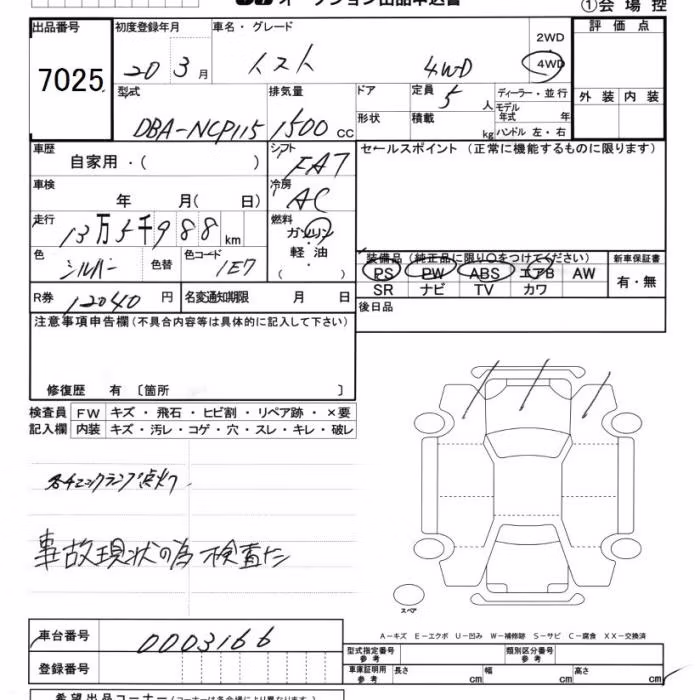 オークション出品申込書 ①会場控
出品番号 初度登録年月 車名・グレード 2WD 評価点
7025 20 3月 イスト 4WD 4WD
型式 排気量 ドア 定員 5人 ディーラー・並行 外装 内装
DBA-NCP115 1500cc 形状 積載 kg モデル年式 年
ハンドル 左・右
車歴 シフト セールスポイント (正常に機能するものに限ります)
自家用・( ) FAT
車検 冷房
年 月( 日) AC
走行 燃料
13万5千988km ガソリン
色 色替 色コード 軽油 装備品 (純正品に限り○をつけてください) 新車保証書
シルバー 1E7 ( ) PS PW ABS エアB AW 有・無
R券 12040円 名変通知期限 月 日 SR ナビ TV カワ
注意事項申告欄(不具合内容等は具体的に記入して下さい) 後日品
修復歴 有 〔箇所 〕
検査員 FW キズ・飛石・ヒビ割・リペア跡・×要
記入欄 内装 キズ・汚レ・コゲ・穴・スレ・キレ・破レ
各チェックランプ点灯
事故現状の為 検査なし
スペア
A-キズ E-エクボ U-凹み W-補修跡 S-サビ C-腐食 XX-交換済
車台番号 0003166 型式指定番号 参考 類別区分番号 参考
登録番号 車庫証明用 参考 長さ cm 幅 cm 高さ cm
希望出品コーナー(コーナーは各会場により異なります)